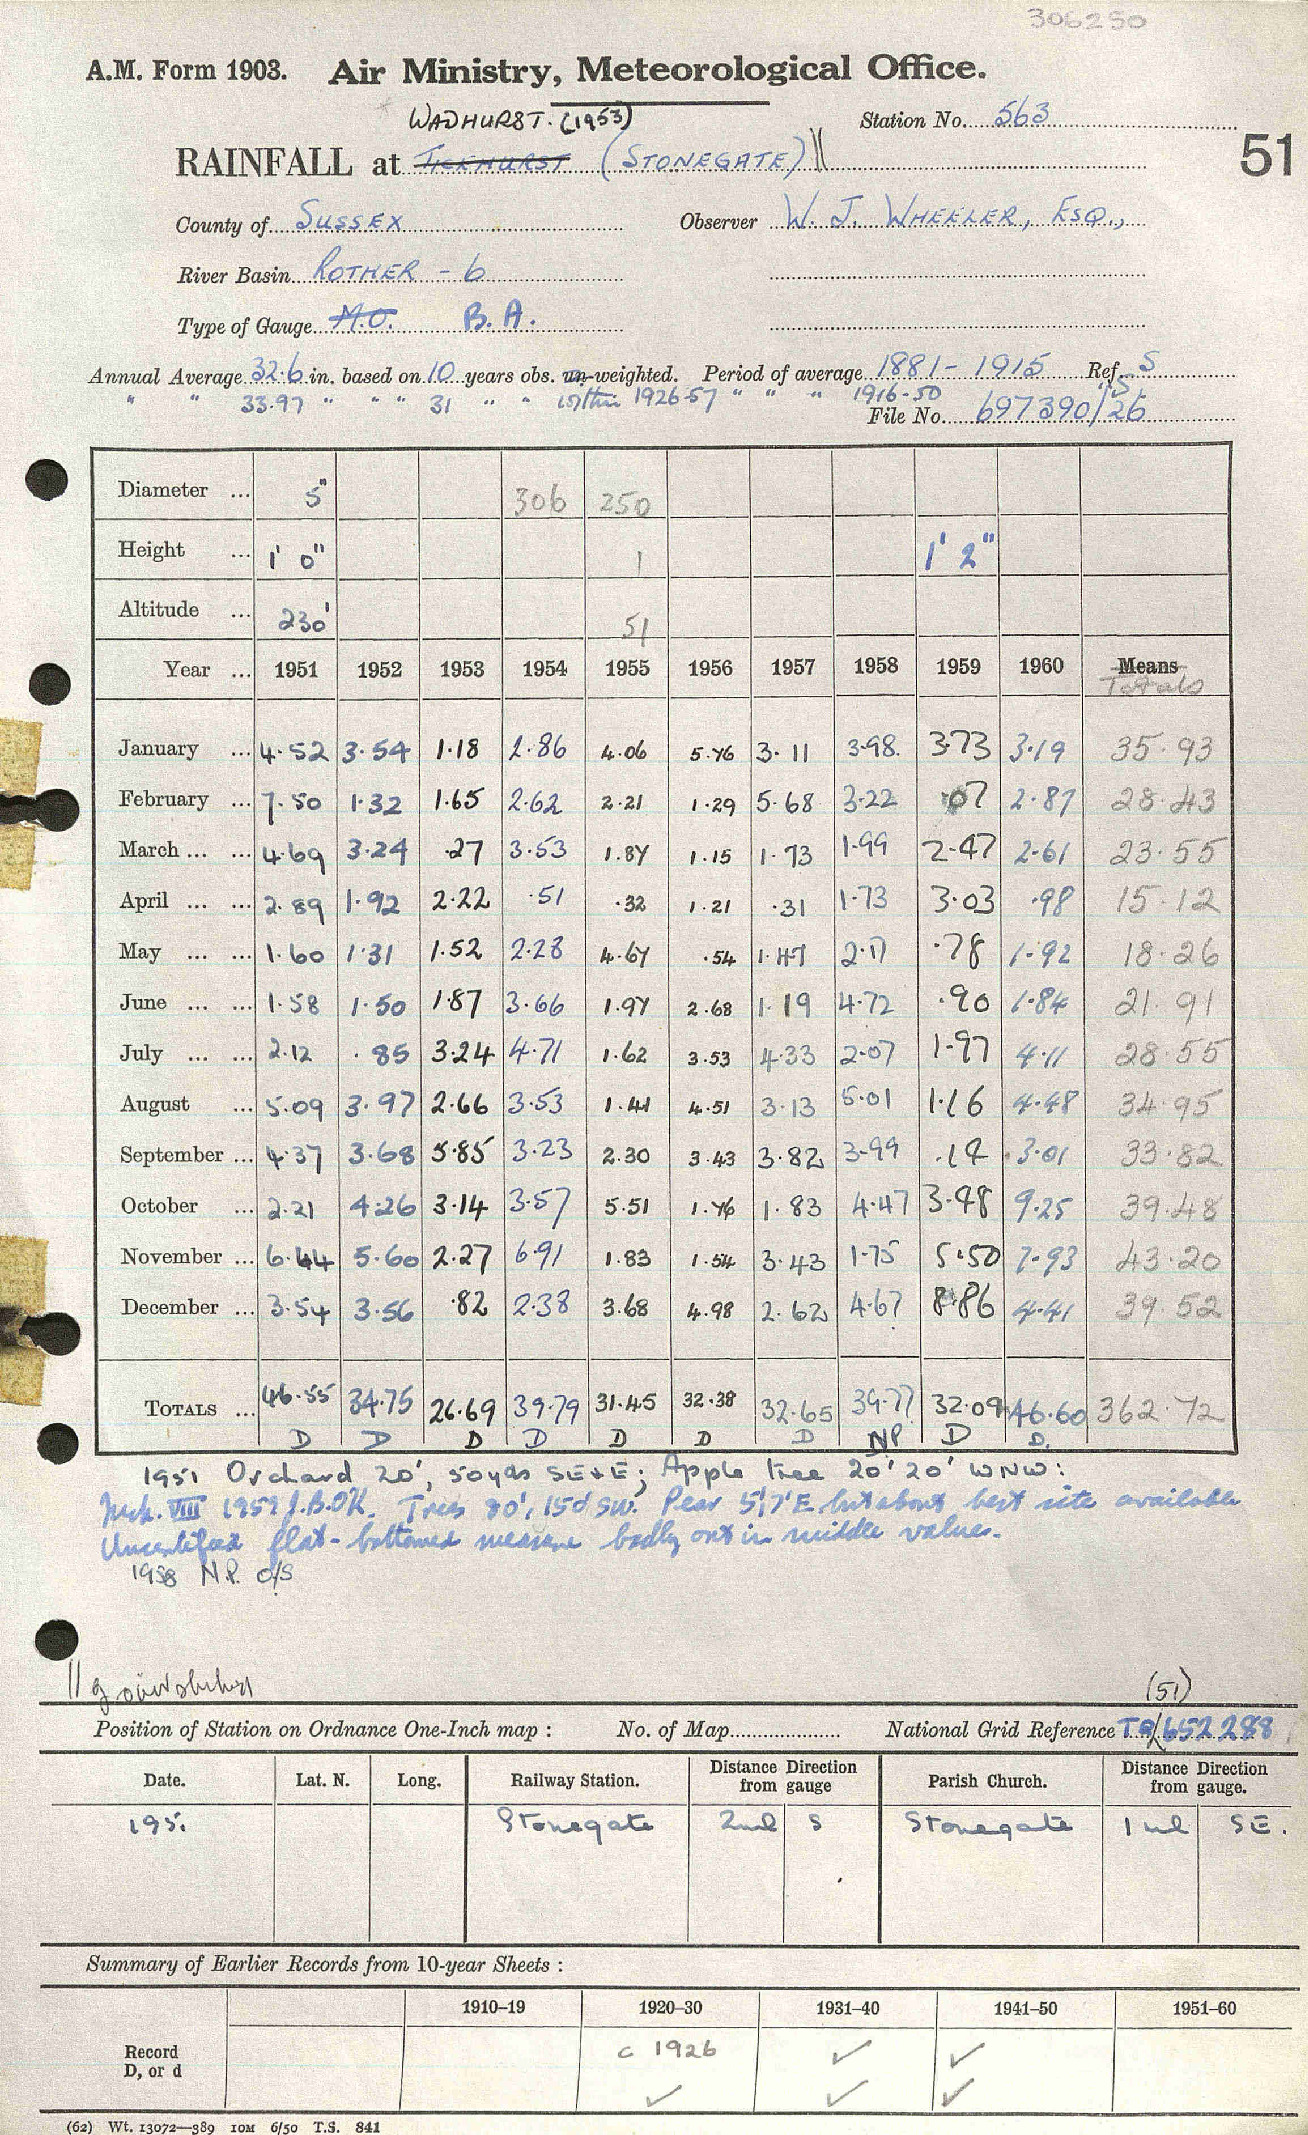 306250
A.M. Form 1903. Air Ministry, Meteorological Office.
WADHURST. (1953)
Station No. 563
51
RAINFALL at TICEHURST (STONEGATE) ||
County of SUSSEX
Observer W. J. WHEELER, ESQ.,
River Basin ROTHER - 6
Type of Gauge M.O. B.A.
Annual Average 32.6 in. based on 10 years obs. un-weighted. Period of average 1881 - 1915 Ref. S
" " 33.97 " " " 31 " " within 1926-57 " " " 1916-50 "S
File No. 697390/26
Diameter ... 5" 306 250
Height ... 1' 0" 1 1' 2"
Altitude ... 230' 51
Year ... 1951 1952 1953 1954 1955 1956 1957 1958 1959 1960 Means
Totals
January ... 4.52 3.54 1.18 2.86 4.06 5.76 3.11 3.98 3.73 3.19 35.93
February ... 7.50 1.32 1.65 2.62 2.21 1.29 5.68 3.22 .07 2.87 28.43
March ... ... 4.69 3.24 .27 3.53 1.87 1.15 1.73 1.99 2.47 2.61 23.55
April ... ... 2.89 1.92 2.22 .51 .32 1.21 .31 1.73 3.03 .98 15.12
May ... ... 1.60 1.31 1.52 2.28 4.67 .54 1.47 2.17 .78 1.92 18.26
June ... ... 1.58 1.50 1.87 3.66 1.97 2.68 1.19 4.72 .90 1.84 21.91
July ... ... 2.12 .85 3.24 4.71 1.62 3.53 4.33 2.07 1.97 4.11 28.55
August ... 5.09 3.97 2.66 3.53 1.41 4.51 3.13 5.01 1.16 4.48 34.95
September ... 4.37 3.68 5.85 3.23 2.30 3.43 3.82 3.99 .14 3.01 33.82
October ... 2.21 4.26 3.14 3.57 5.51 1.76 1.83 4.47 3.48 9.25 39.48
November ... 6.44 5.60 2.27 6.91 1.83 1.54 3.43 1.75 5.50 7.93 43.20
December ... 3.54 3.56 .82 2.38 3.68 4.98 2.62 4.67 8.86 4.41 39.52
TOTALS ... 46.55 34.75 26.69 39.79 31.45 32.38 32.65 39.77 32.09 46.60 362.72
D D D D D D D NP D D.
1951 Orchard 20', 50yds SE & E; Apple tree 20' 20' WNW:
VIII 1959 J.B. OK. Trees 80', 150' SW. Pear 5', 7' E, but about best site available
Uncertified flat-bottomed measure badly out in middle values.
1958 N.P. O/S
||
(51)
Position of Station on Ordnance One-Inch map : No. of Map National Grid Reference TQ/652288
Date. Lat. N. Long. Railway Station. Distance Direction from gauge Parish Church. Distance Direction from gauge.
1951 Stonegate 2ml S Stonegate 1ml SE.
Summary of Earlier Records from 10-year Sheets :
1910–19 1920–30 1931–40 1941–50 1951–60
Record D, or d c 1926 ✓ ✓
✓ ✓ ✓
(62) Wt. 13072—389 10M 6/50 T.S. 841